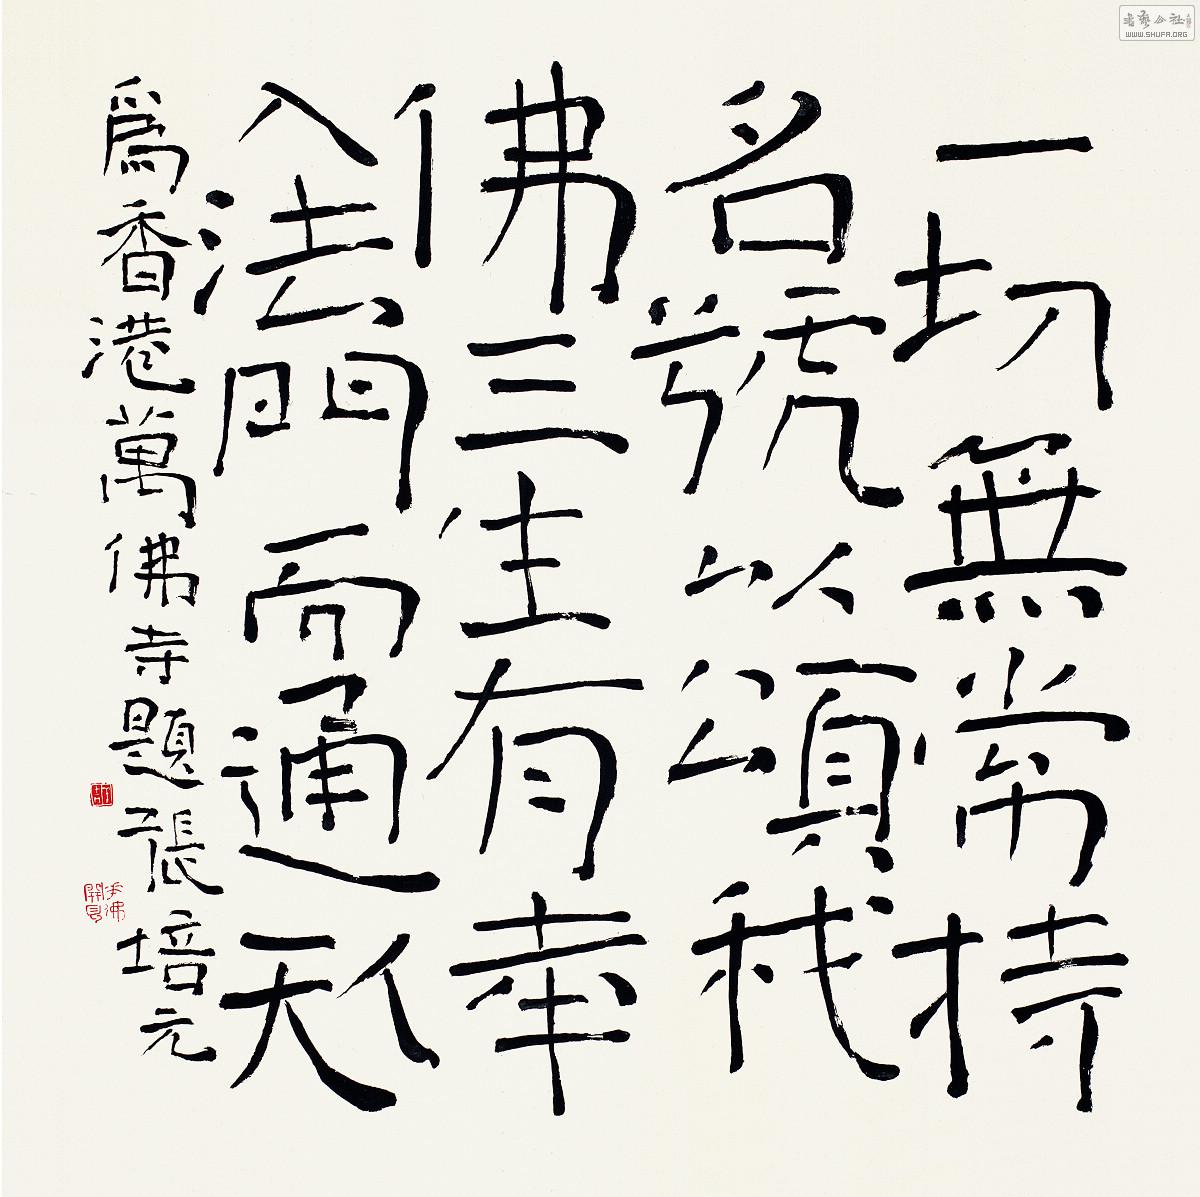 一切無常持
名號以頌我
佛三生有幸
入法門而通天人
為香港萬佛寺題張培元
WWW.SHUFA.ORG